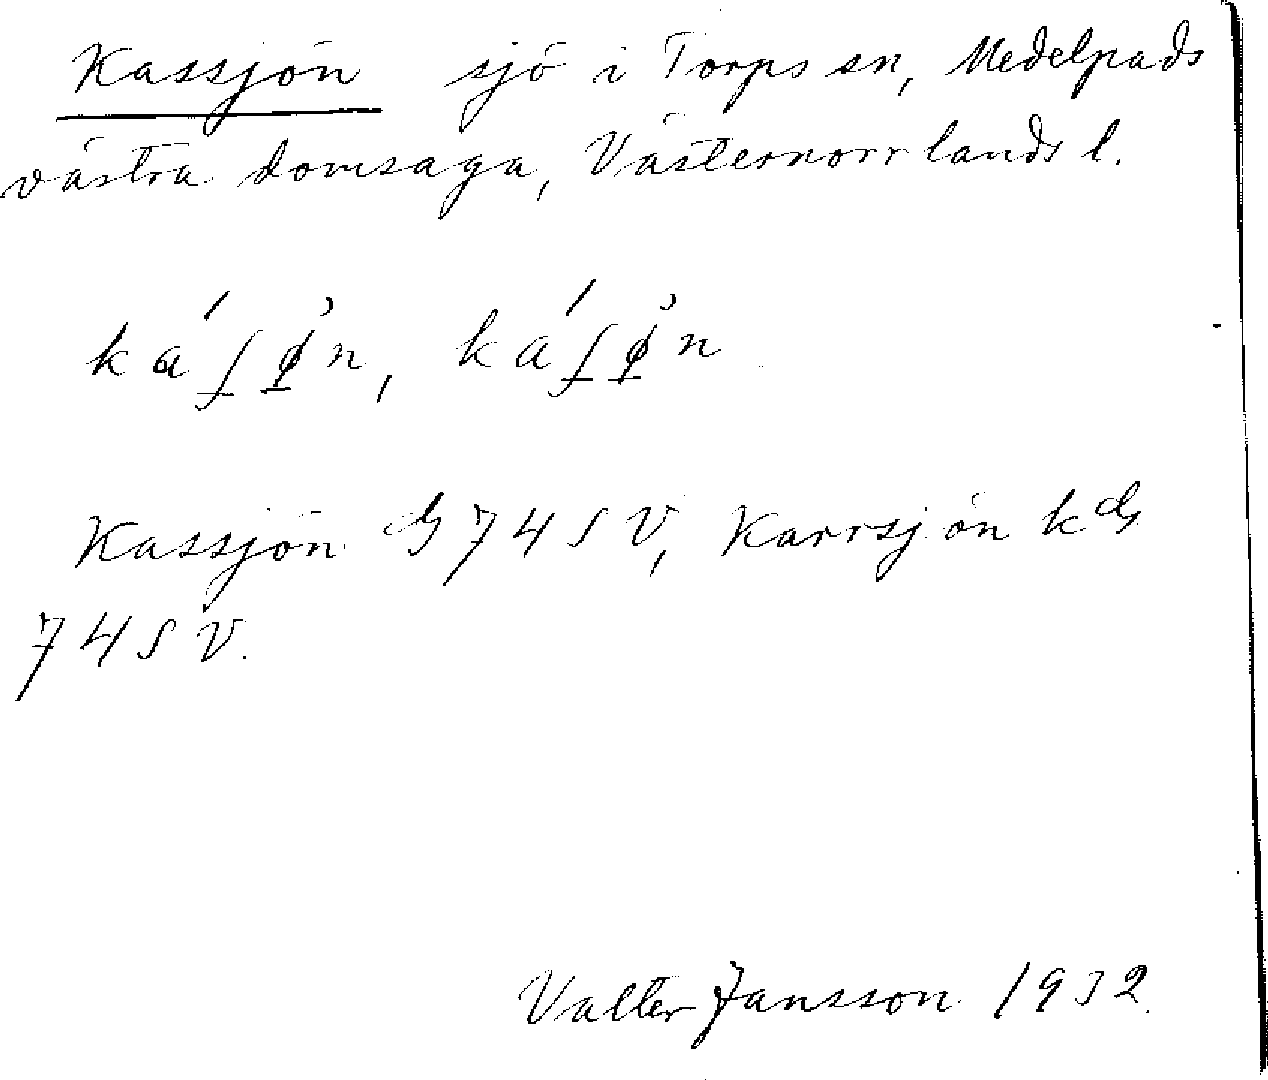 Kassjön sjö i Torps sn, Medelpads
västra domsaga, Västernorrlands l.
Kassjön GS 74 SV, Karrsjön k GS
74 SV.
Valter Jansson 1932.